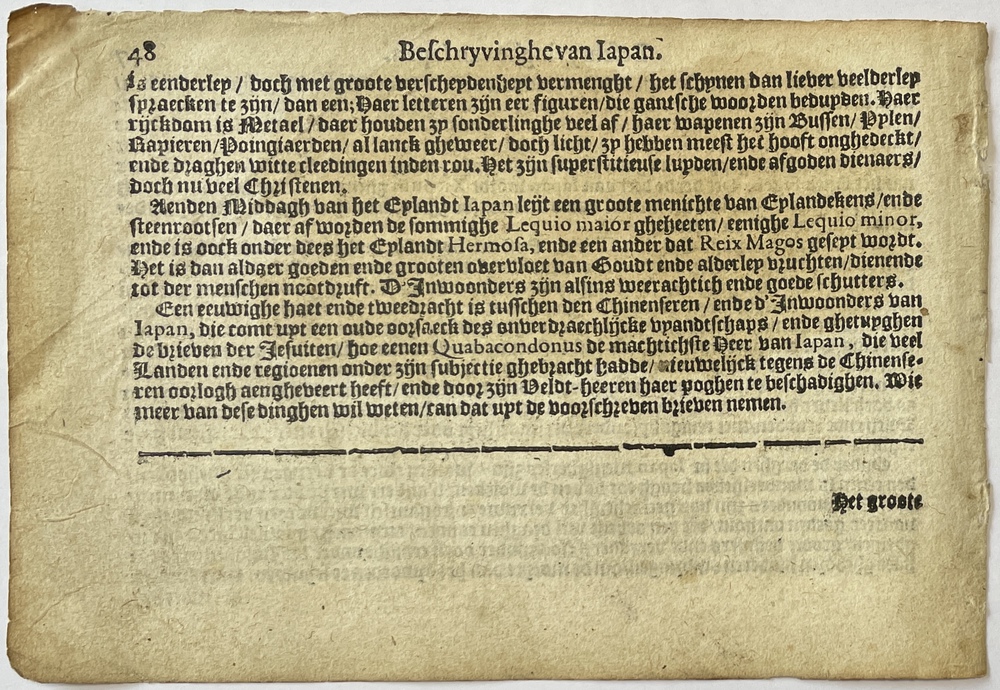 48 Beſchryvinghe van Iapan.
is eenderley / doch met groote verscheydenheyt vermenght / het schynen dan liever veelderley
spraecken te zijn / dan een; Haer letteren zijn eer figuren / die gantsche woorden beduyden. Haer
rijckdom is Metael / daer houden zy sonderlinghe veel af / haer wapenen zijn Bussen / Pylen /
Rapieren / Poingiaerden / al lanck gheweer / doch licht / zy hebben meest het hooft onghedeckt /
ende draghen witte cleedingen inden rou. Het zijn superstitieuse luyden / ende afgoden dienaers /
doch nu veel Christenen.
Aenden Middagh van het Eylandt Iapan leijt een groote menichte van Eylandekens / ende
steenrootsen / daer af worden de sommighe Lequio maior gheheeten / eenighe Lequio minor,
ende is oock onder dees het Eylandt Hermoſa, ende een ander dat Reix Magos geseyt wordt.
Het is dan aldaer goeden ende grooten overvloet van Goudt ende alderley vruchten / dienende
tot der menschen nootdruft. D'Inwoonders zijn alsins weerachtich ende goede schutters.
Een eeuwighe haet ende tweedracht is tusschen den Chinenseren / ende d'Inwoonders van
Iapan, die comt uyt een oude oorsaeck des onverdraechlijcke vyandtschaps / ende ghetuyghen
de brieven der Jesuiten / hoe eenen Quabacondonus de machtichste Heer van Iapan, die veel
Landen ende regioenen onder zijn subjectie ghebracht hadde / nieuwelijck tegens de Chinense-
ren oorlogh aengheveert heeft / ende door zijn Veldt-heeren haer poghen te beschadighen. Wie
meer van dese dinghen wil weten / can dat uyt de voorschreven brieven nemen.
Het groote